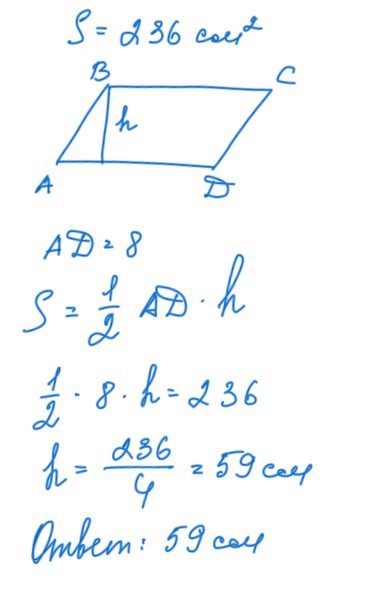 S = 236 см²
B
C
h
A
D
AD = 8
S = 1/2 AD · h
1/2 · 8 · h = 236
h = 236/4 = 59 см
Ответ: 59 см